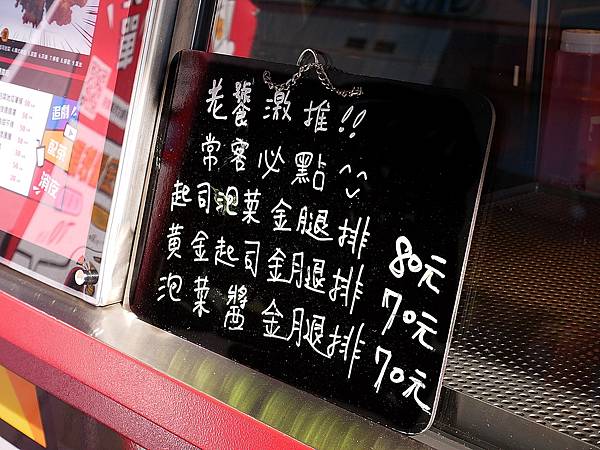 老饕激推!!
常客必點^^
起司泡菜金腿排 80元
黃金起司金腿排 70元
泡菜醬金腿排 70元
追劇
配球
消夜